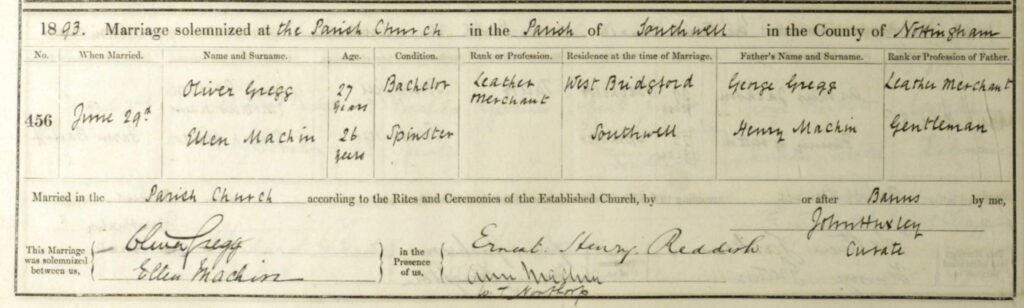 1893. Marriage solemnized at the Parish Church in the Parish of Southwell in the County of Nottingham
No. When Married. Name and Surname. Age. Condition. Rank or Profession. Residence at the time of Marriage. Father's Name and Surname. Rank or Profession of Father.
456 June 29th Oliver Gregg 27 years Bachelor Leather Merchant West Bridgford George Gregg Leather Merchant
Ellen Machin 26 years Spinster Southwell Henry Machin Gentleman
Married in the Parish Church according to the Rites and Ceremonies of the Established Church, by or after Banns by me,
John Huxley
Curate
This Marriage was solemnized between us, Oliver Gregg in the Presence of us, Ernest Henry Reddish
Ellen Machin Ann Machin
W J Northorp